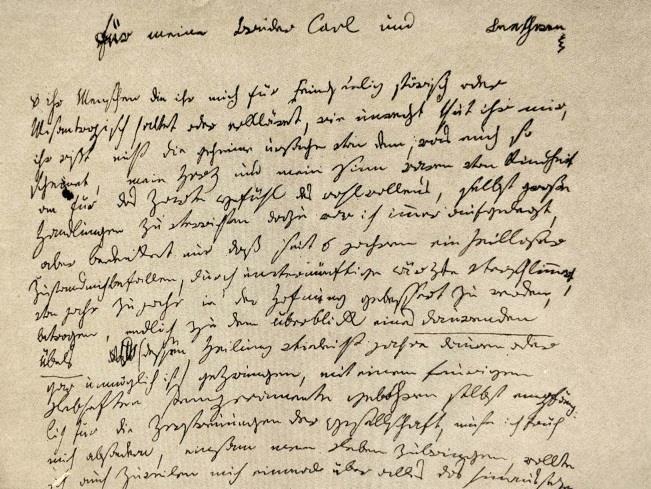 für meine Brüder Carl und Beethowen
o ihr Menschen die ihr mich für Feindseelig störisch oder
Misantropisch haltet oder erkläret, wie unrecht thut ihr mir,
ihr wißt nicht die geheime ursache von dem, was euch so
scheinet, mein Herz und mein Sinn waren von Kindheit
an für das Zarte gefühl des wohlwollens, selbst große
Handlungen zu verrichten dazu war ich immer aufgelegt,
aber bedenket nur daß seit 6 jahren ein heilloser
Zustand mich befallen, durch unvernünftige ärzte verschlimmert,
von jahr zu jahr in der Hofnung gebessert zu werden,
betrogen, endlich zu dem überblick eines daurenden
Übels (dessen Heilung vieleicht jahre dauren oder
gar unmöglich ist) gezwungen, mit einem feurigen
Lebhaften Temperamente gebohren selbst empfäng-
lich für die Zerstreuungen der Gesellschaft, muste ich früh
mich absondern, einsam mein Leben zubringen, wollte
ich auch zuweilen mich einmal über alles das hinaussezen